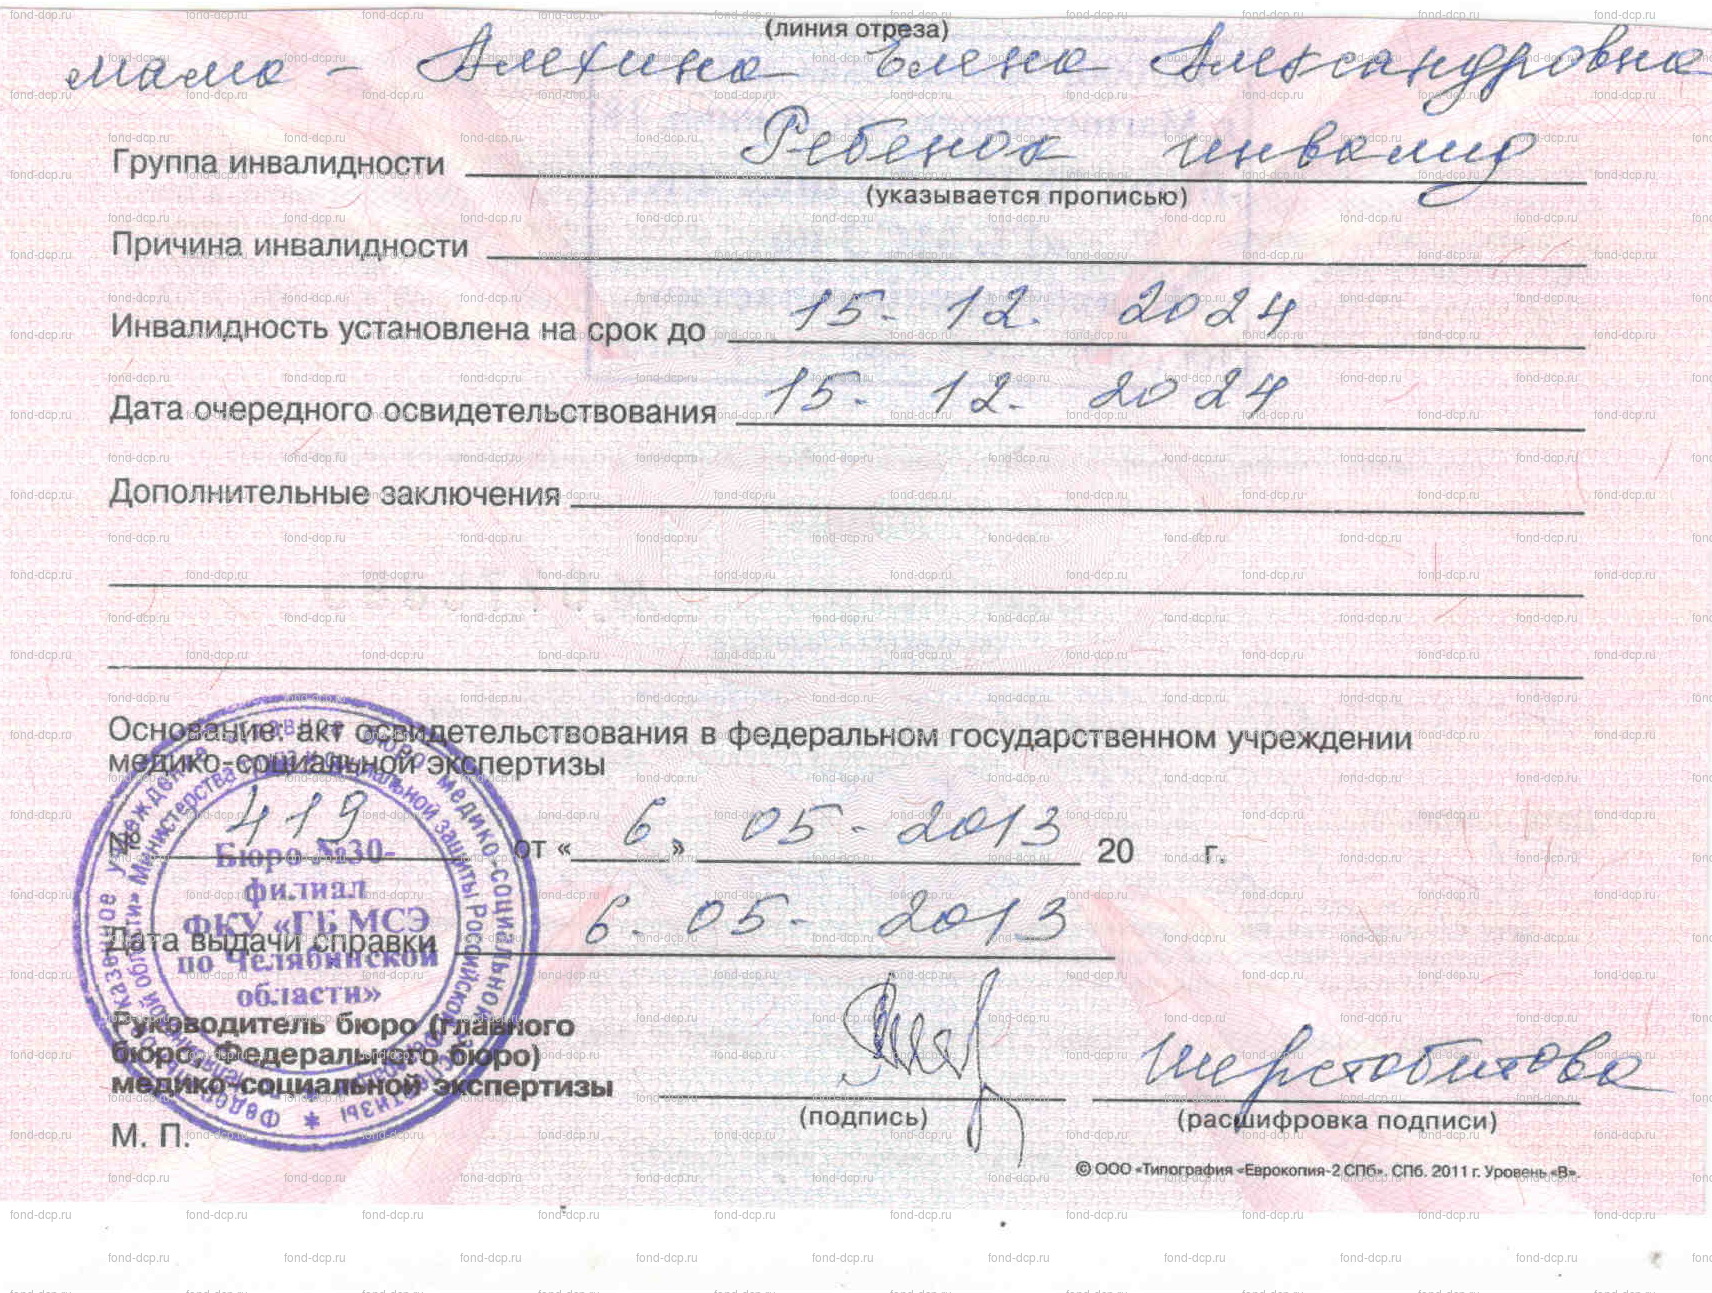 (линия отреза)
мама - Алехина Елена Александровна
Группа инвалидности Ребенок инвалид
(указывается прописью)
Причина инвалидности
Инвалидность установлена на срок до 15. 12. 2024
Дата очередного освидетельствования 15. 12. 2024
Дополнительные заключения
Основание: акт освидетельствования в федеральном государственном учреждении
медико-социальной экспертизы
№ 419 от « 6 » 05 - 2013 20 г.
Дата выдачи справки 6. 05 - 2013
Бюро №30-
филиал
ФКУ «ГБ МСЭ
по Челябинской
области»
Руководитель бюро (главного
бюро, Федерального бюро)
медико-социальной экспертизы
Шерстобитова
(подпись) (расшифровка подписи)
М. П.
© ООО «Типография «Еврокопия-2 СПб». СПб. 2011 г. Уровень «В».
fond-dcp.ru